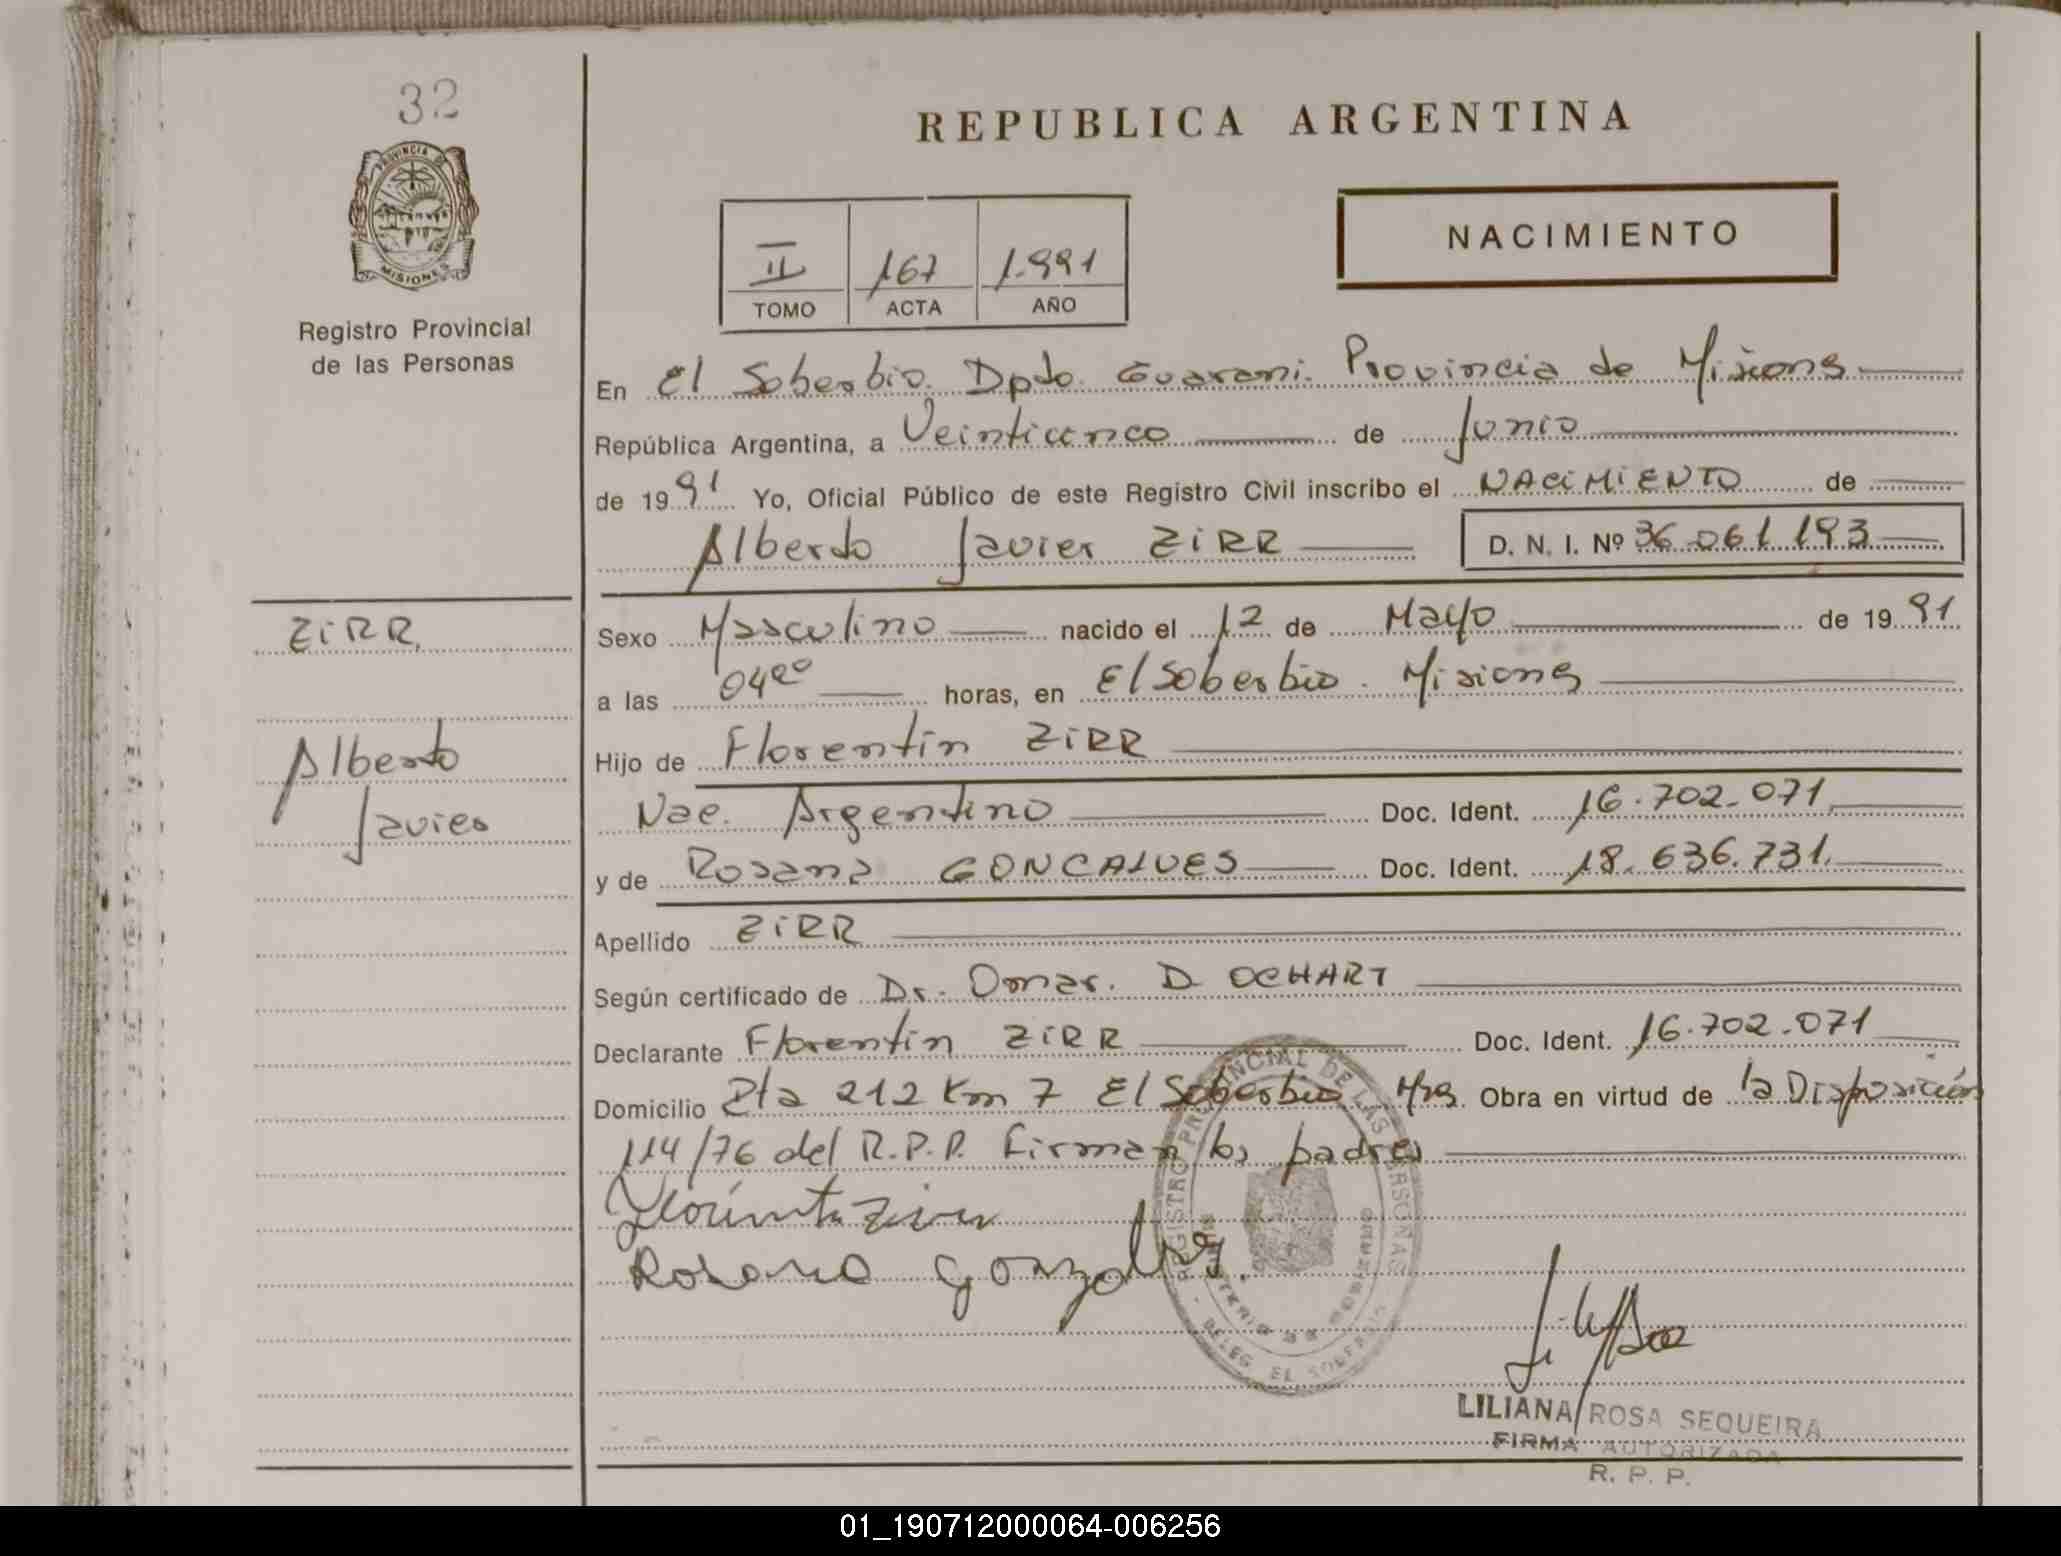 32
PROVINCIA DE
MISIONES
Registro Provincial
de las Personas
REPUBLICA ARGENTINA
II 167 1.991
TOMO ACTA AÑO
NACIMIENTO
En El Soberbio. Dpto. Guarani. Provincia de Misiones
República Argentina, a Veinticinco de Junio
de 1991 Yo, Oficial Público de este Registro Civil inscribo el NACIMIENTO de
Alberto Javier ZIRR D. N. I. Nº 36.061.193
ZIRR
Alberto
Javier
Sexo Masculino nacido el 12 de Mayo de 1991
a las 04 horas, en El Soberbio. Misiones
Hijo de Florentin ZIRR
Nac. Argentino Doc. Ident. 16.702.071
y de Rosana GONCALVES Doc. Ident. 18.636.731.
Apellido ZIRR
Según certificado de Dr. Omar. D. OCHART
Declarante Florentin ZIRR Doc. Ident. 16.702.071
Domicilio Rta 212 Km 7 El Soberbio Mns. Obra en virtud de la Disposición
114/76 del R.P.P. Firman los padres
Rosana Gonzalves.
REGISTRO PROVINCIAL DE LAS PERSONAS
DELEG EL SOBERBIO
LILIANA ROSA SEQUEIRA
FIRMA AUTORIZADA
R. P. P.
01_190712000064-006256